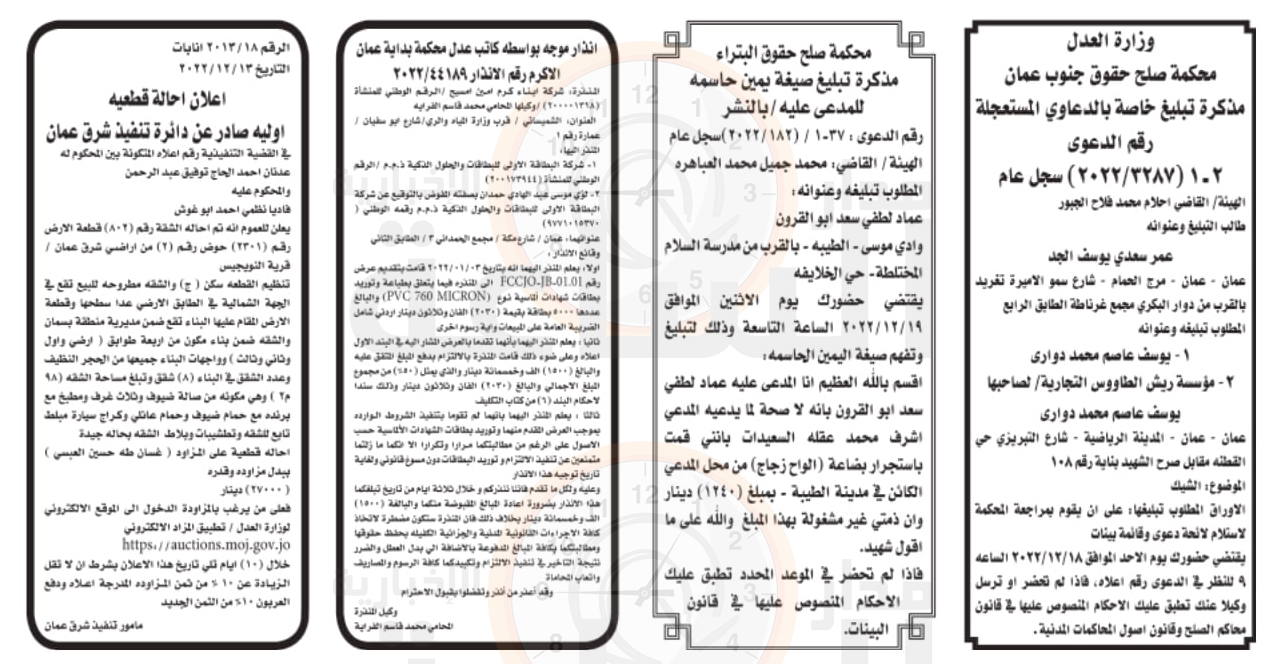 وزارة العدل
محكمة صلح حقوق جنوب عمان
مذكرة تبليغ خاصة بالدعاوي المستعجلة
رقم الدعوى
٢ـ١ (٢٠٢٢/٣٢٨٧) سجل عام
الهيئة/ القاضي احلام محمد فلاح الجبور
طالب التبليغ وعنوانه
عمر سعدي يوسف الجد
عمان - عمان - مرج الحمام - شارع سمو الاميرة تغريد
بالقرب من دوار البكري مجمع غرناطة الطابق الرابع
المطلوب تبليغه وعنوانه
١ - يوسف عاصم محمد دوارى
٢- مؤسسة ريش الطاووس التجارية/ لصاحبها
يوسف عاصم محمد دوارى
عمان - عمان - المدينة الرياضية - شارع التبريزي حي
القطنه مقابل صرح الشهيد بناية رقم ١٠٨
الموضوع: الشيك
الاوراق المطلوب تبليغها: على ان يقوم بمراجعة المحكمة
لاستلام لائحة دعوى وقائمة بينات
يقتضي حضورك يوم الاحد الموافق ٢٠٢٢/١٢/١٨ الساعه
٩ للنظر في الدعوى رقم اعلاه، فاذا لم تحضر او ترسل
وكيلا عنك تطبق عليك الاحكام المنصوص عليها في قانون
محاكم الصلح وقانون اصول المحاكمات المدنية.
محكمة صلح حقوق البتراء
مذكرة تبليغ صيغة يمين حاسمه
للمدعى عليه / بالنشر
رقم الدعوى : ٣٧-١ / (٢٠٢٢/١٨٢)سجل عام
الهيئة / القاضي: محمد جميل محمد العباهره
المطلوب تبليغه وعنوانه :
عماد لطفي سعد ابو القرون
وادي موسى - الطيبه - بالقرب من مدرسة السلام
المختلطة- حي الخلايفه
يقتضي حضورك يوم الاثنين الموافق
٢٠٢٢/١٢/١٩ الساعة التاسعة وذلك لتبليغ
وتفهم صيغة اليمين الحاسمه :
اقسم بالله العظيم انا المدعى عليه عماد لطفي
سعد ابو القرون بانه لا صحة لما يدعيه المدعي
اشرف محمد عقله السعيدات بانني قمت
باستجرار بضاعة (الواح زجاج) من محل المدعي
الكائن في مدينة الطيبة - بمبلغ (١٢٤٠) دينار
وان ذمتي غير مشغولة بهذا المبلغ والله على ما
اقول شهيد.
فاذا لم تحضر في الموعد المحدد تطبق عليك
الاحكام المنصوص عليها في قانون
البينات.
انذار موجه بواسطه كاتب عدل محكمة بداية عمان
الاكرم رقم الانذار ٢٠٢٢/٤٤١٨٩
المنذرة: شركة ابناء كرم امين امسيح /الرقم الوطني للمنشأة
(٢٠٠٠٠١٣١٨) /وكيلها المحامي محمد قاسم الغرايه
العنوان: الشميساني / قرب وزارة المياه والري/شارع ابو سفيان /
عمارة رقم ١
المنذر اليها:
١- شركة البطاقة الاولى للبطاقات والحلول الذكية ذ.م.م /الرقم
الوطني للمنشأة (٢٠٠١٧٣٩٤٤)
٢- لؤي موسى عبد الهادي حمدان بصفته المفوض بالتوقيع عن شركة
البطاقة الاولى للبطاقات والحلول الذكية ذ.م.م رقمه الوطني (
٩٧٧١٠١٥٣٧٠)
عنوانهما: عمان / شارع مكة / مجمع الحمداني ٣ / الطابق الثاني
وقائع الانذار :
اولا: يعلم المنذر اليهما انه بتاريخ ٢٠٢٢/٠١/٠٣ قامت بتقديم عرض
رقم FCCJO-JB-01.01 الى المنذره فيما يتعلق بطباعة وتوريد
بطاقات شهادات الماسية نوع (PVC 760 MICRON) والبالغ
عددها ٥٠٠٠ بطاقة بقيمة (٢٠٣٠) الفان وثلاثون دينار اردني شامل
الضريبة العامة على المبيعات واية رسوم اخرى
ثانيا : يعلم المنذر اليهما بأنهما تقدما بالعرض المشار اليه في البند الاول
اعلاه وعلى ضوء ذلك قامت المنذرة بالالتزام بدفع المبلغ المتفق عليه
والبالغ (١٥٠٠) الف وخمسمائة دينار والذي يمثل (٥٠٪) من مجموع
المبلغ الاجمالي والبالغ (٢٠٣٠) الفان وثلاثون دينار وذلك سندا
لاحكام البند (٦) من كتاب التكليف
ثالثا : يعلم المنذر اليهما بانهما لم تقوما بتنفيذ الشروط الوارده
بموجب العرض المقدم منهما وتوريد بطاقات الشهادات الألماسية حسب
الاصول على الرغم من مطالبتكما مرارا وتكرارا الا انكما ما زلتما
متمنعين عن تنفيذ الالتزام وتوريد البطاقات دون مسوغ قانوني ولغاية
تاريخ توجيه هذا الانذار
وعليه ولكل ما تقدم فاننا ننذركم و خلال ثلاثة ايام من تاريخ تبلغكما
هذا الانذار بضرورة اعادة المبالغ المقبوضة منكما والبالغة (١٥٠٠)
الف وخمسمائة دينار بخلاف ذلك فان المنذرة ستكون مضطرة لاتخاذ
كافة الاجراءات القانونية المدنية والجزائية الكفيله بحفظ حقوقها
ومطالبتكما بكافة المبالغ المدفوعة بالاضافة الى بدل العطل والضرر
نتيجة التاخير في تنفيذ الالتزام وتكبيدكما كافة الرسوم والمصاريف
واتعاب المحاماة
وقد أعذر من أنذر وتفضلوا بقبول الاحترام
وكيل المنذرة
المحامي محمد قاسم الغراية
الرقم ٢٠١٣/١٨ انابات
التاريخ ٢٠٢٢/١٢/١٣
اعلان احالة قطعيه
اوليه صادر عن دائرة تنفيذ شرق عمان
في القضية التنفيذية رقم اعلاه المتكونة بين المحكوم له
عدنان احمد الحاج توفيق عبد الرحمن
والمحكوم عليه
فاديا نظمي احمد ابو غوش
يعلن للعموم انه تم احاله الشقة رقم (٨٠٢) قطعة الارض
رقم (٢٣٠١) حوض رقم (٢) من اراضي شرق عمان /
قرية النويجيس
تنظيم القطعه سكن (ج) والشقه مطروحه للبيع تقع في
الجهة الشمالية في الطابق الارضي عدا سطحها وقطعة
الارض المقام عليها البناء تقع ضمن مديرية منطقة بسمان
والشقه ضمن بناء مكون من اربعة طوابق ( ارضي واول
وثاني وثالث ) وواجهات البناء جميعها من الحجر النظيف
وعدد الشقق في البناء (٨) شقق وتبلغ مساحة الشقه (٩٨
م٢ ) وهي مكونه من صالة ضيوف وثلاث غرف ومطبخ مع
برنده مع حمام ضيوف وحمام عائلي وكراج سيارة مبلط
تابع للشقه وتطشيبات وبلاط الشقه بحاله جيدة
احاله قطعية على المزاود ( غسان طه حسين العبسي )
ببدل مزاوده وقدره
(٢٧٠٠٠ ) دينار
فعلى من يرغب بالمزاودة الدخول الى الموقع الالكتروني
لوزارة العدل / تطبيق المزاد الالكتروني
https://auctions.moj.gov.jo
خلال (١٠) ايام تلي تاريخ هذا الاعلان بشرط ان لا تقل
الزيادة عن ١٠ ٪ من ثمن المزاوده المدرجة اعلاه ودفع
العربون ١٠٪ من الثمن الجديد
مامور تنفيذ شرق عمان